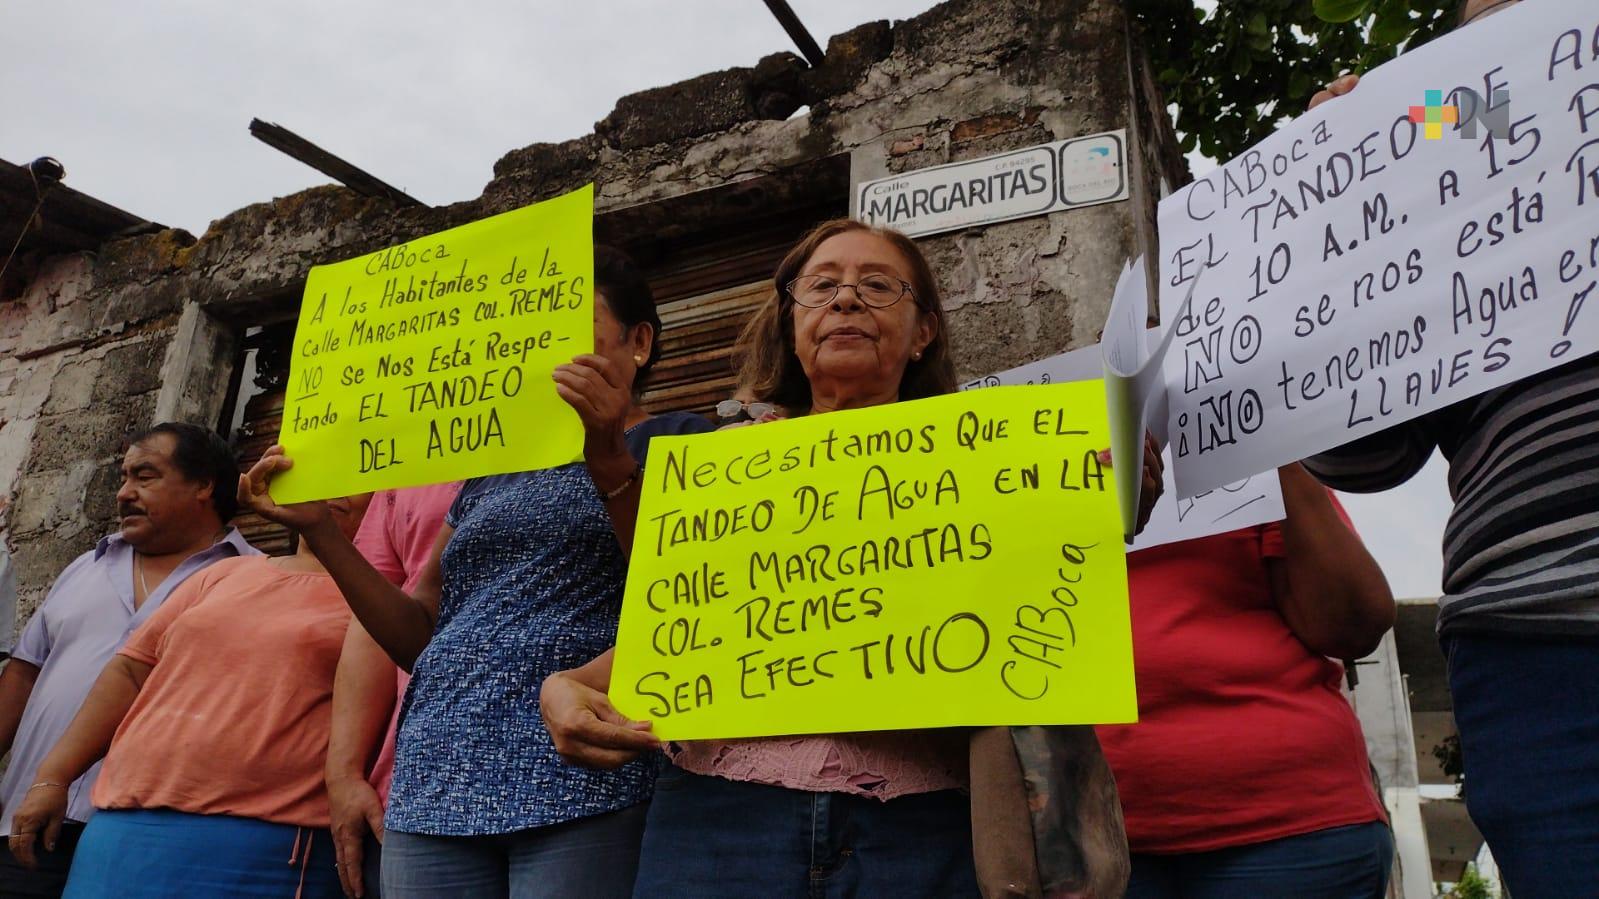 CABoca
A los Habitantes de la
Calle MARGARITAS COL. REMES
NO se Nos Está Respe-
tando EL TANDEO
DEL AGUA
Calle
C.P. 94295
MARGARITAS
BOCA DEL RÍO
Necesitamos Que EL
TANDEO DE AGUA EN LA
CAlle MARGARITAS
COL. REMES
SEA EFECTIVO
CABoca
CABoca
EL TANDEO DE
de 10 A.M. A 15
NO se nos está
¡NO tenemos Agua en
LLAVES!
N